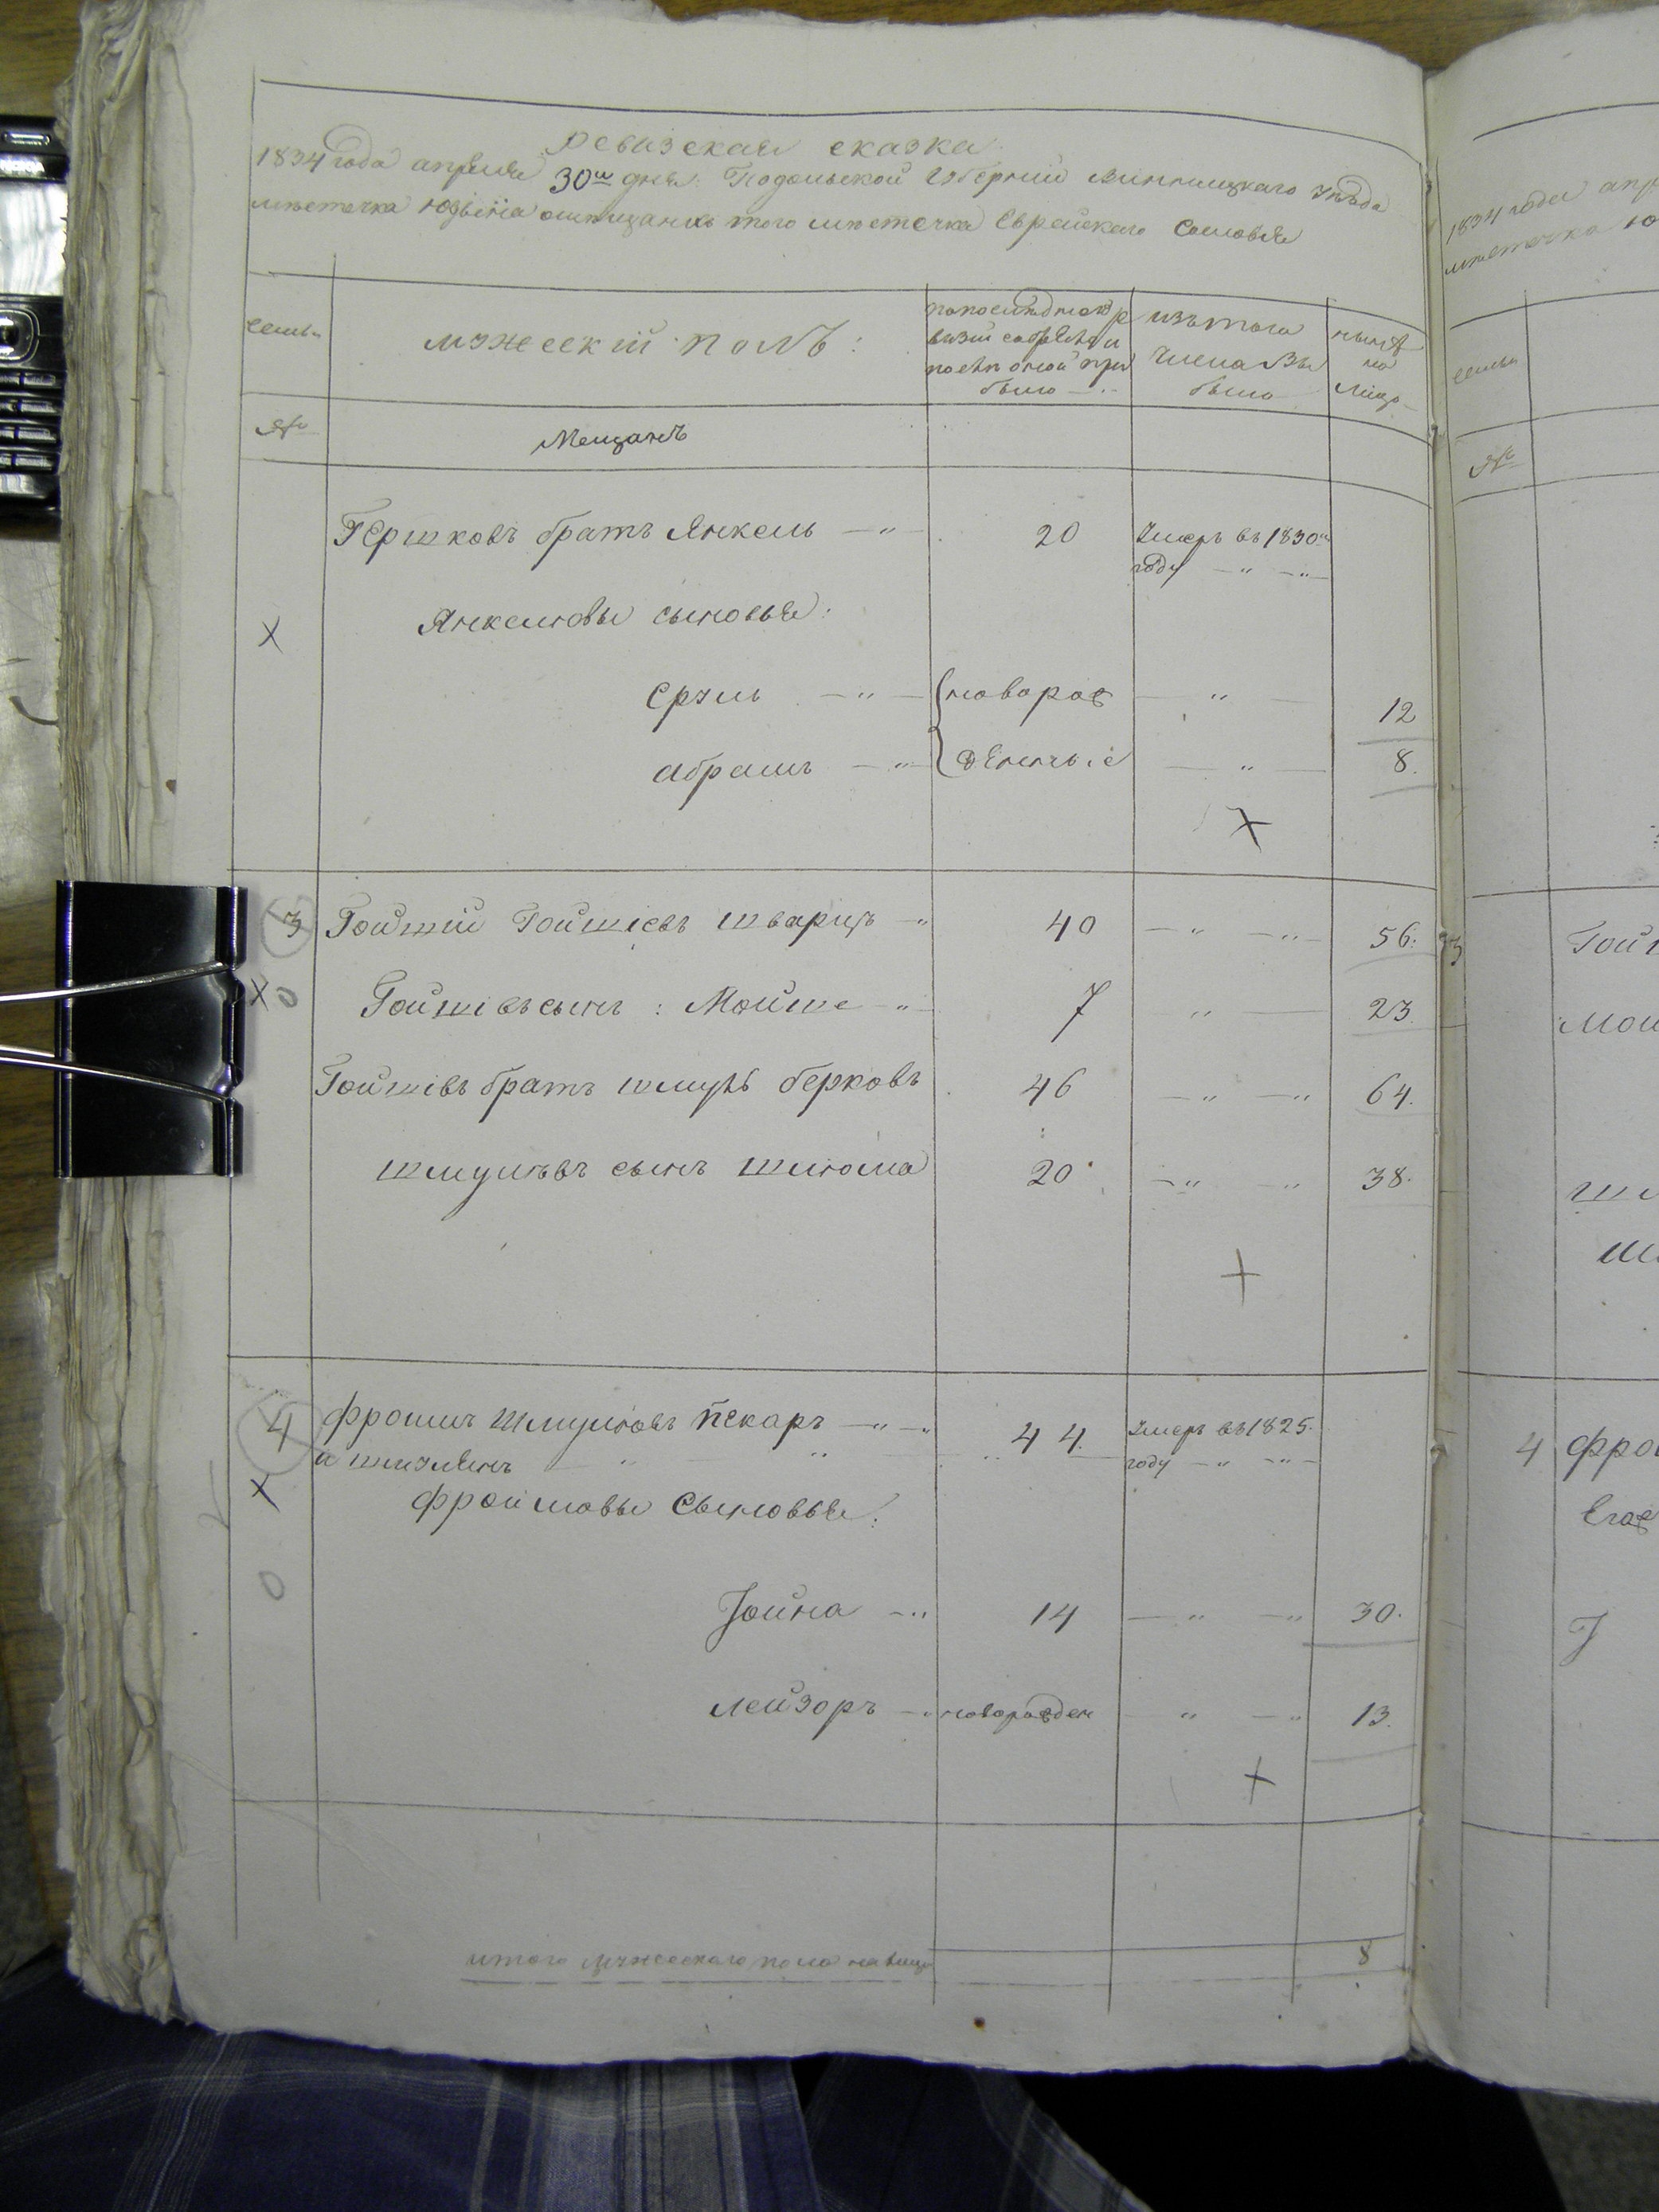 Ревизская сказка
1834 года апреля 30го дня Подольской губернии Винницкаго уезда
местечка Юзвина о мещанахъ того местечка Еврейскаго Сословия
семьи
мужеский полъ:
по последней ре
визии состояло и
после оной при
было
изъ того
числа вы
было
ныне
на
лицо
№
Мещанъ
Гершковъ братъ Янкель — " — 20 Умеръ въ 1830м
году — " — " —
Х
Янкелювы сыновья:
Сруль — " — новорож — " — 12
Абрамъ — " — денные — " — 8.
Х
3 Гойший Гойшиевъ Шварцъ — " 40 — " — " — 56.
Х 0 Гойшiевъ сынъ: Мойше — " 7 " — 23
Гойшiвъ братъ Шмуль Берковъ 46 — " — " 64.
Шмулёвъ сынъ Шлёма 20 — " — " 38.
+
4 Фроимъ Шмулёвъ Пекаръ — " — " 44. Умеръ въ 1825.
году — " — " —
Х Фроймовы Сыновья:
0
Iойна — " 14 — " — " 30.
Лейзоръ — " новорожден " — " 13.
+
итого мужескаго пола на лицо 8
1834 года апр
местечка Ю
семьи
№
3 Гой
Мош
Шм
4 Фро
Его